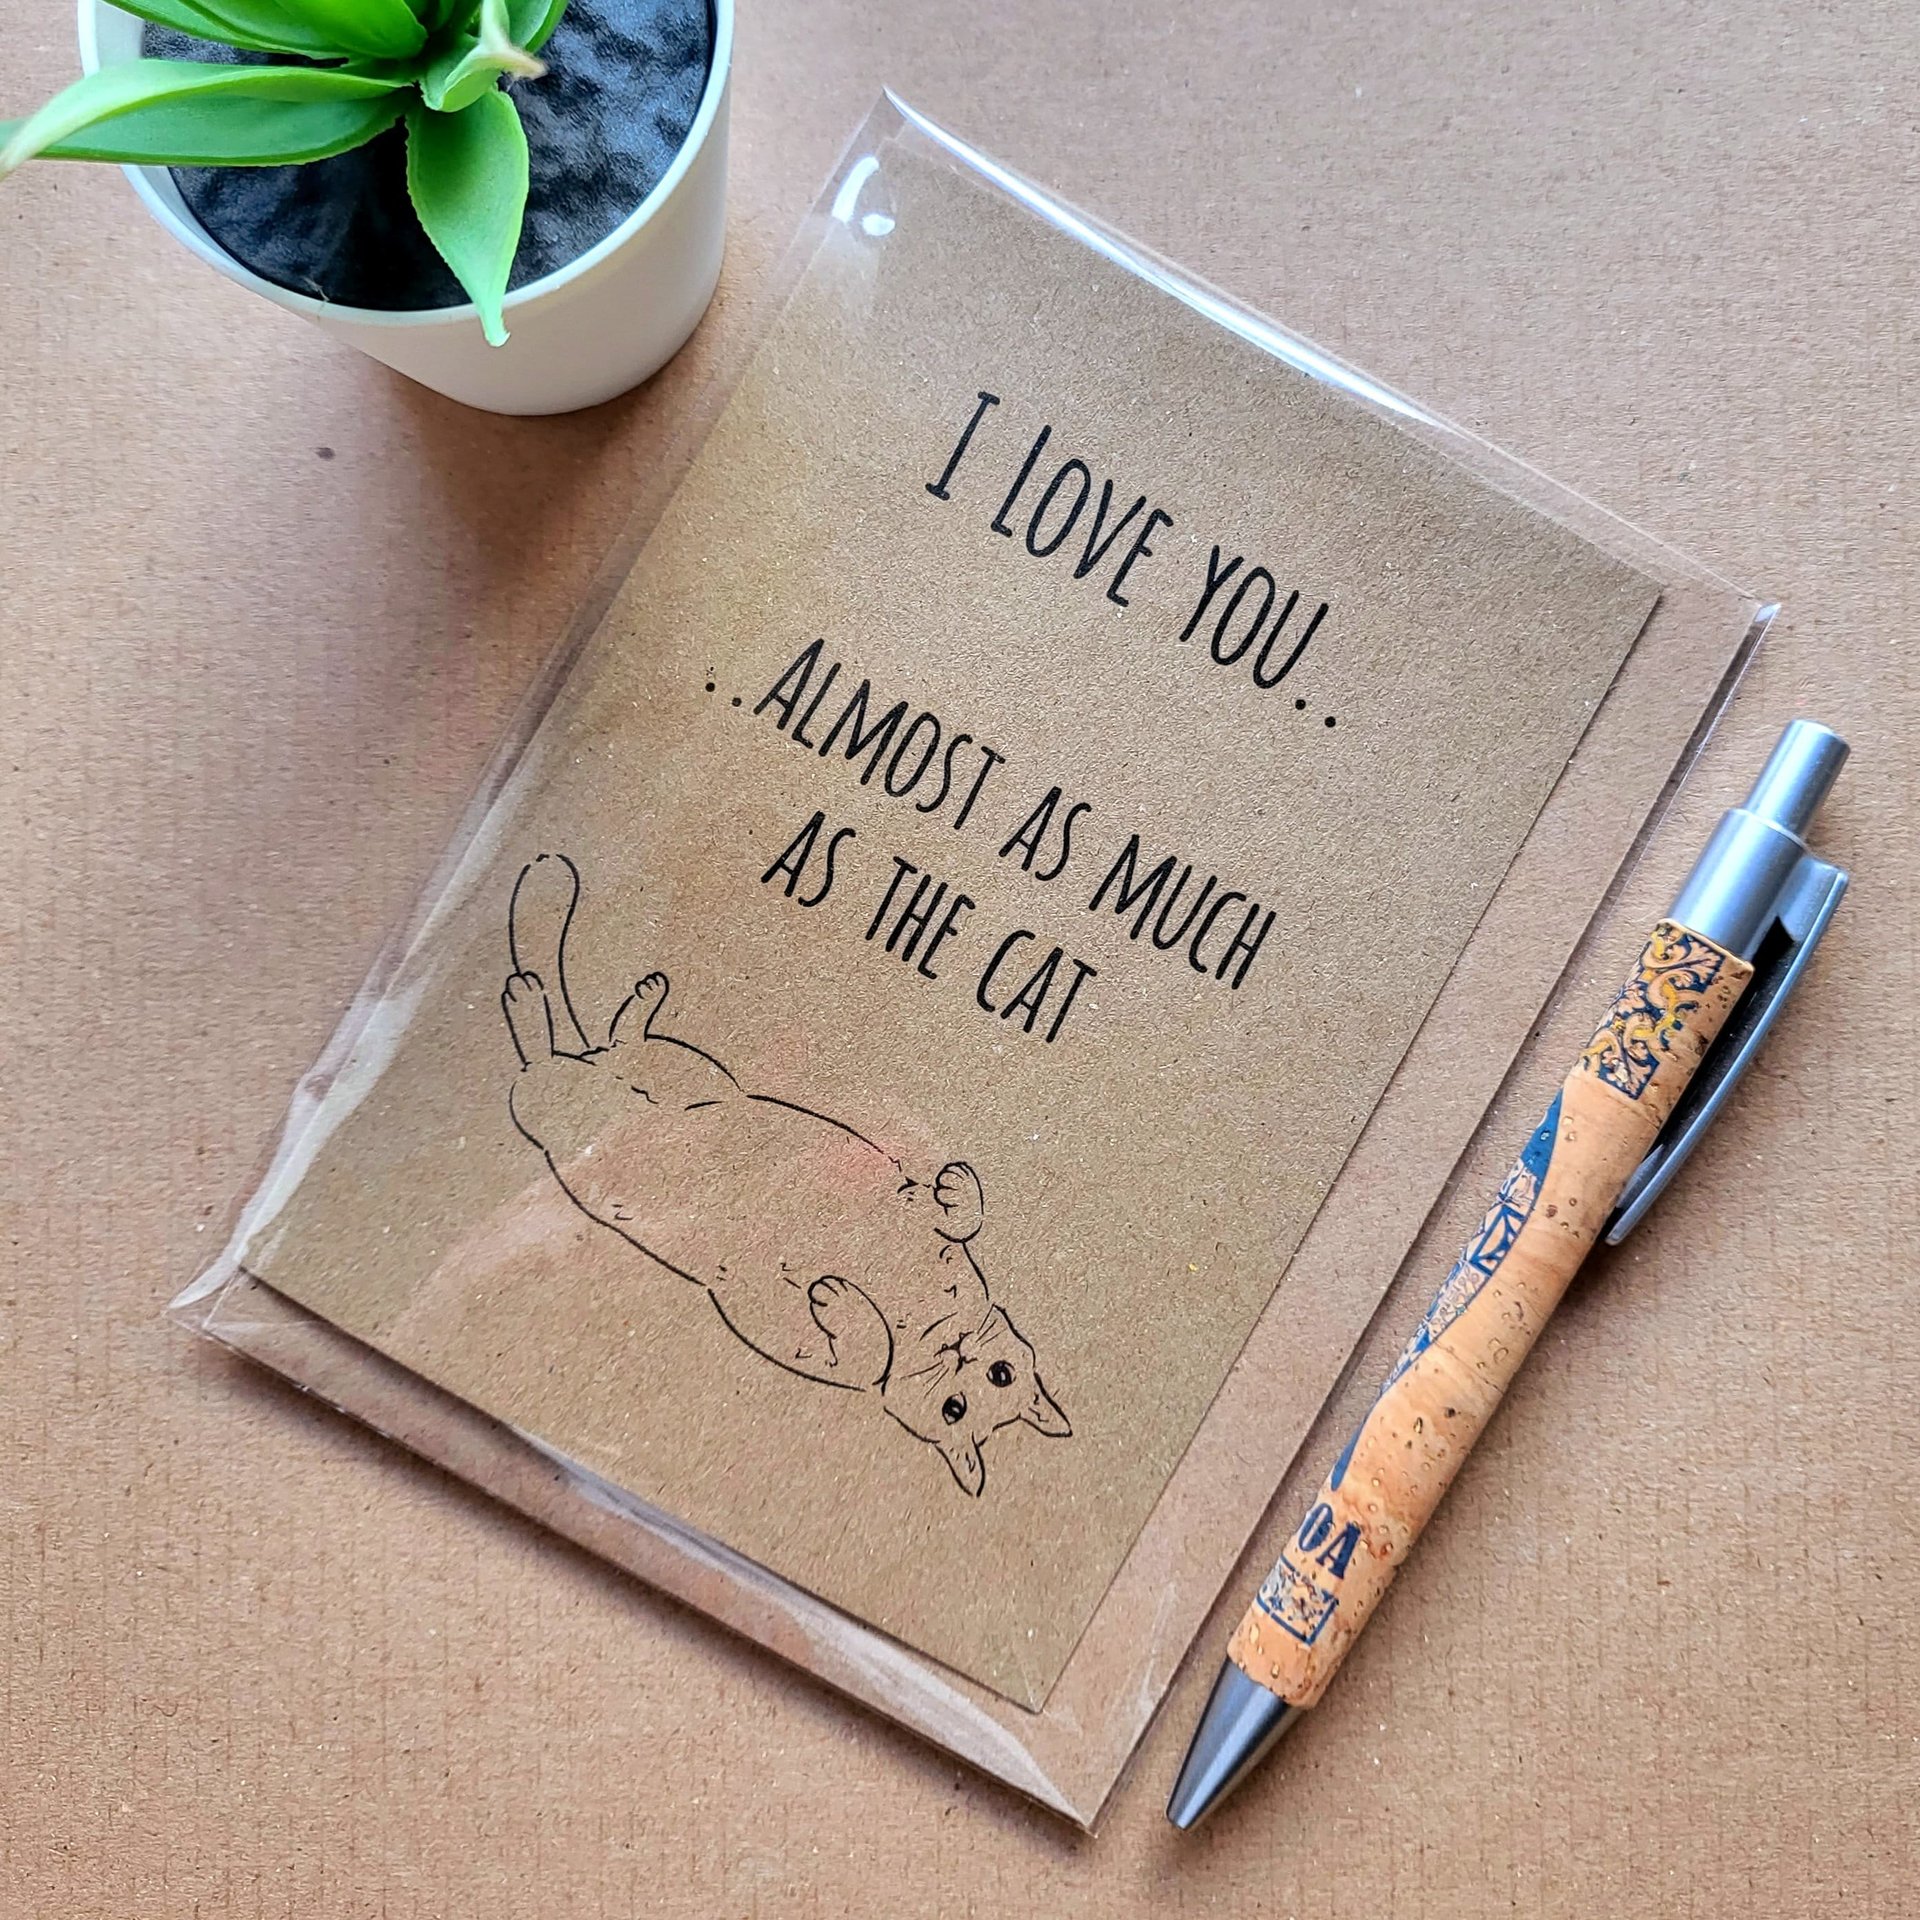 I LOVE YOU..
..ALMOST AS MUCH
AS THE CAT
OA